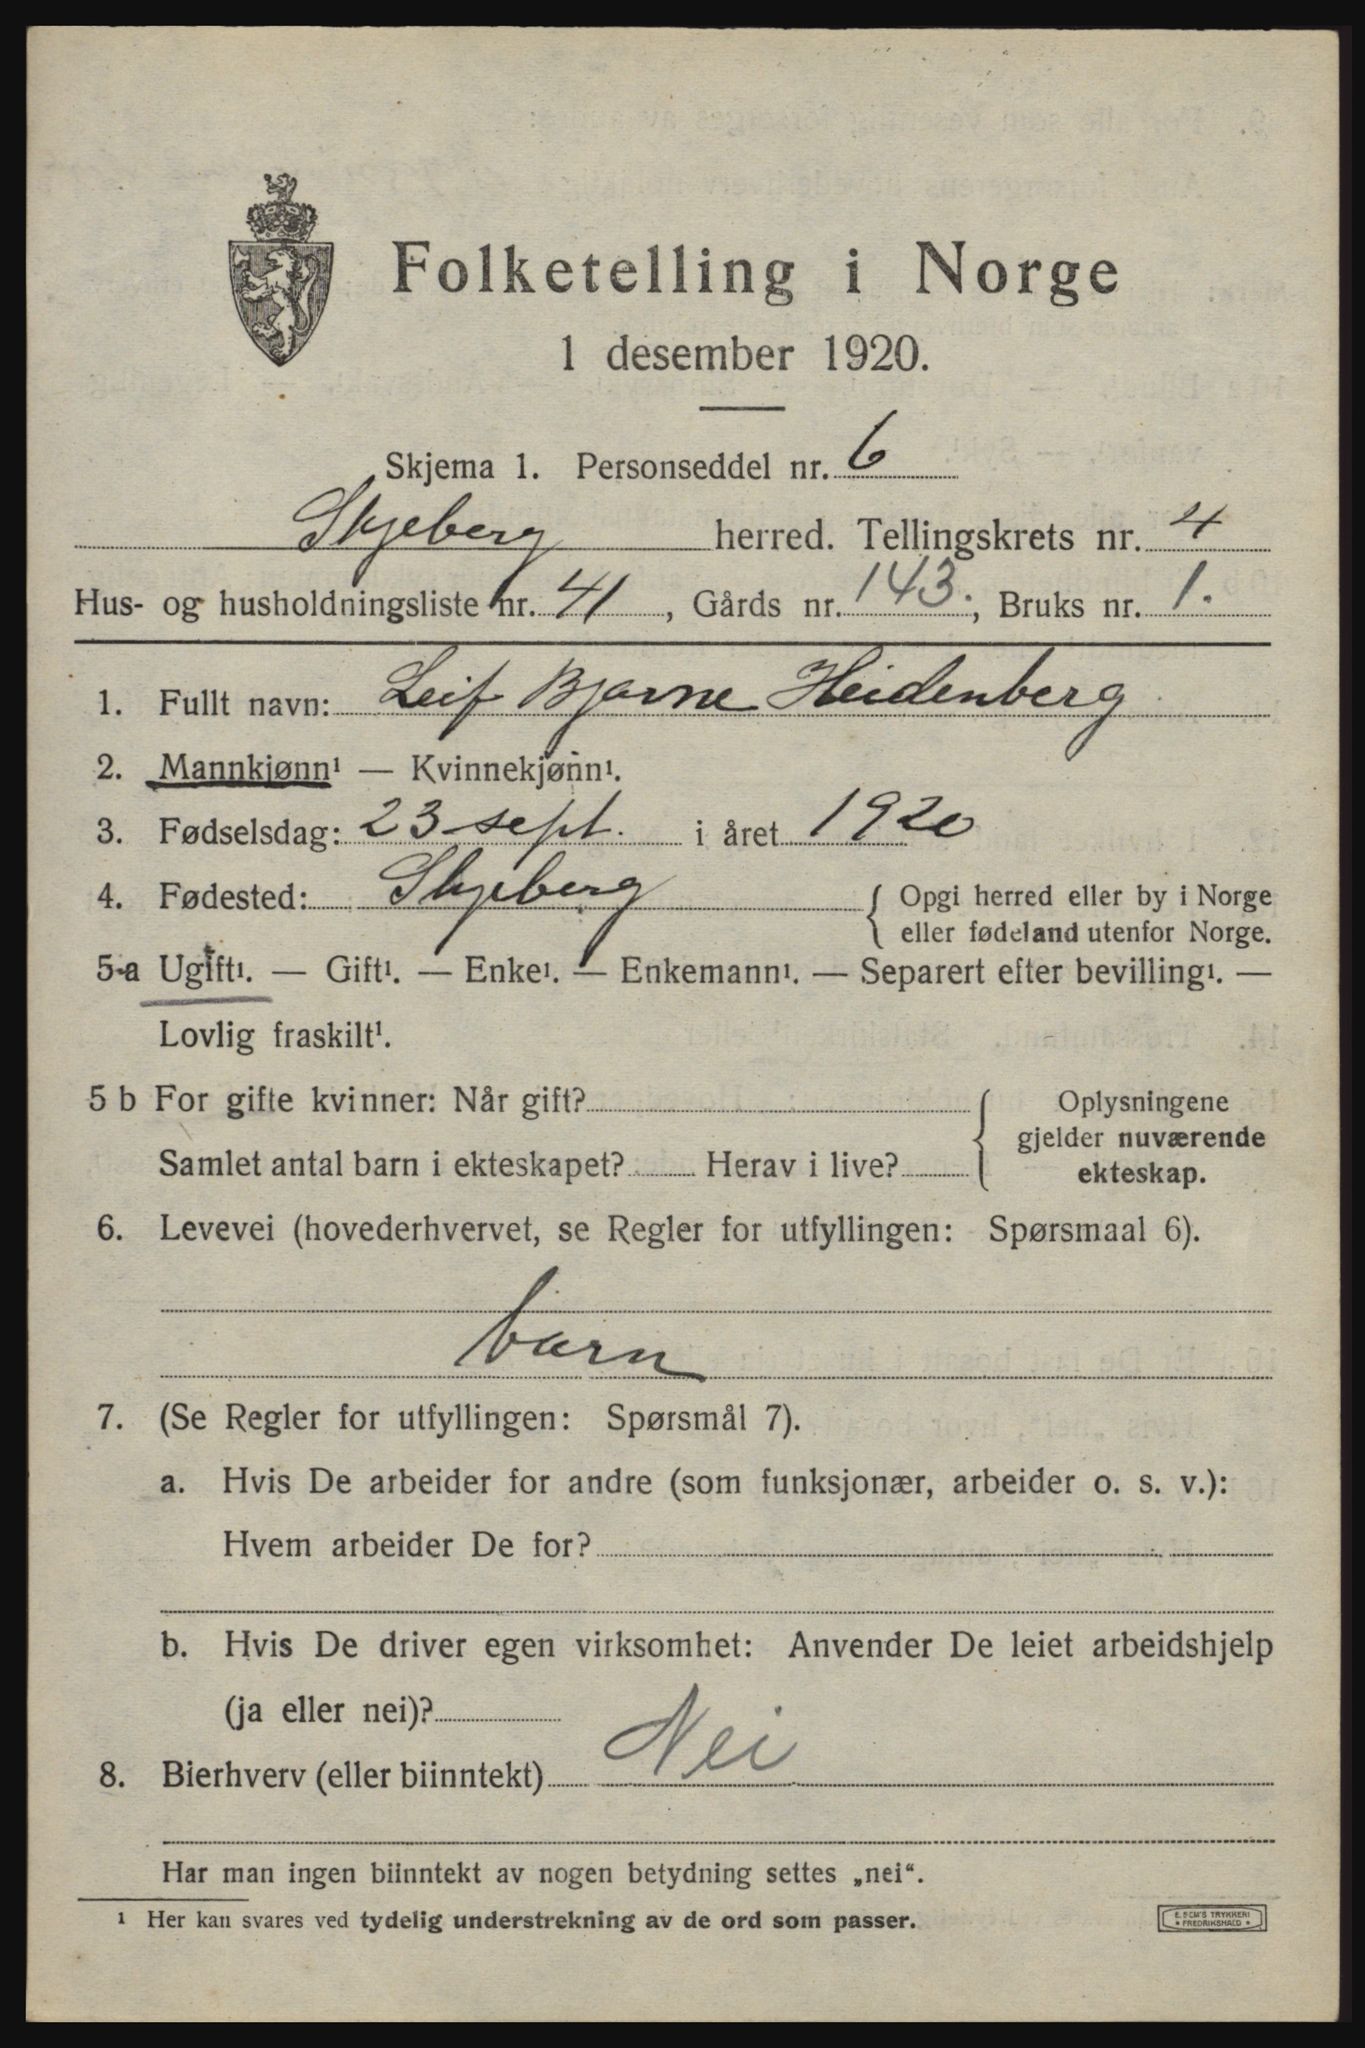 Folketelling i Norge
1 desember 1920.
Skjema 1. Personseddel nr. 6
Skjeberg herred. Tellingskrets nr. 4
Hus- og husholdningsliste nr. 41, Gårds nr. 143., Bruks nr. 1.
1. Fullt navn: Leif Bjarne Heidenberg
2. Mannkjønn¹ — Kvinnekjønn¹.
3. Fødselsdag: 23 sept. i året 1920
4. Fødested: Skjeberg { Opgi herred eller by i Norge
eller fødeland utenfor Norge.
5 a Ugift¹. — Gift¹. — Enke¹. — Enkemann¹. — Separert efter bevilling¹. —
Lovlig fraskilt¹.
5 b For gifte kvinner: Når gift? { Oplysningene
gjelder nuværende
Samlet antal barn i ekteskapet? Herav i live? ekteskap.
6. Levevei (hovederhvervet, se Regler for utfyllingen: Spørsmaal 6).
barn
7. (Se Regler for utfyllingen: Spørsmål 7).
a. Hvis De arbeider for andre (som funksjonær, arbeider o. s. v.):
Hvem arbeider De for?
b. Hvis De driver egen virksomhet: Anvender De leiet arbeidshjelp
(ja eller nei)?
8. Bierhverv (eller biinntekt) Nei
Har man ingen biinntekt av nogen betydning settes „nei“.
¹ Her kan svares ved tydelig understrekning av de ord som passer.
TRYKKERI
FREDRIKSHALD